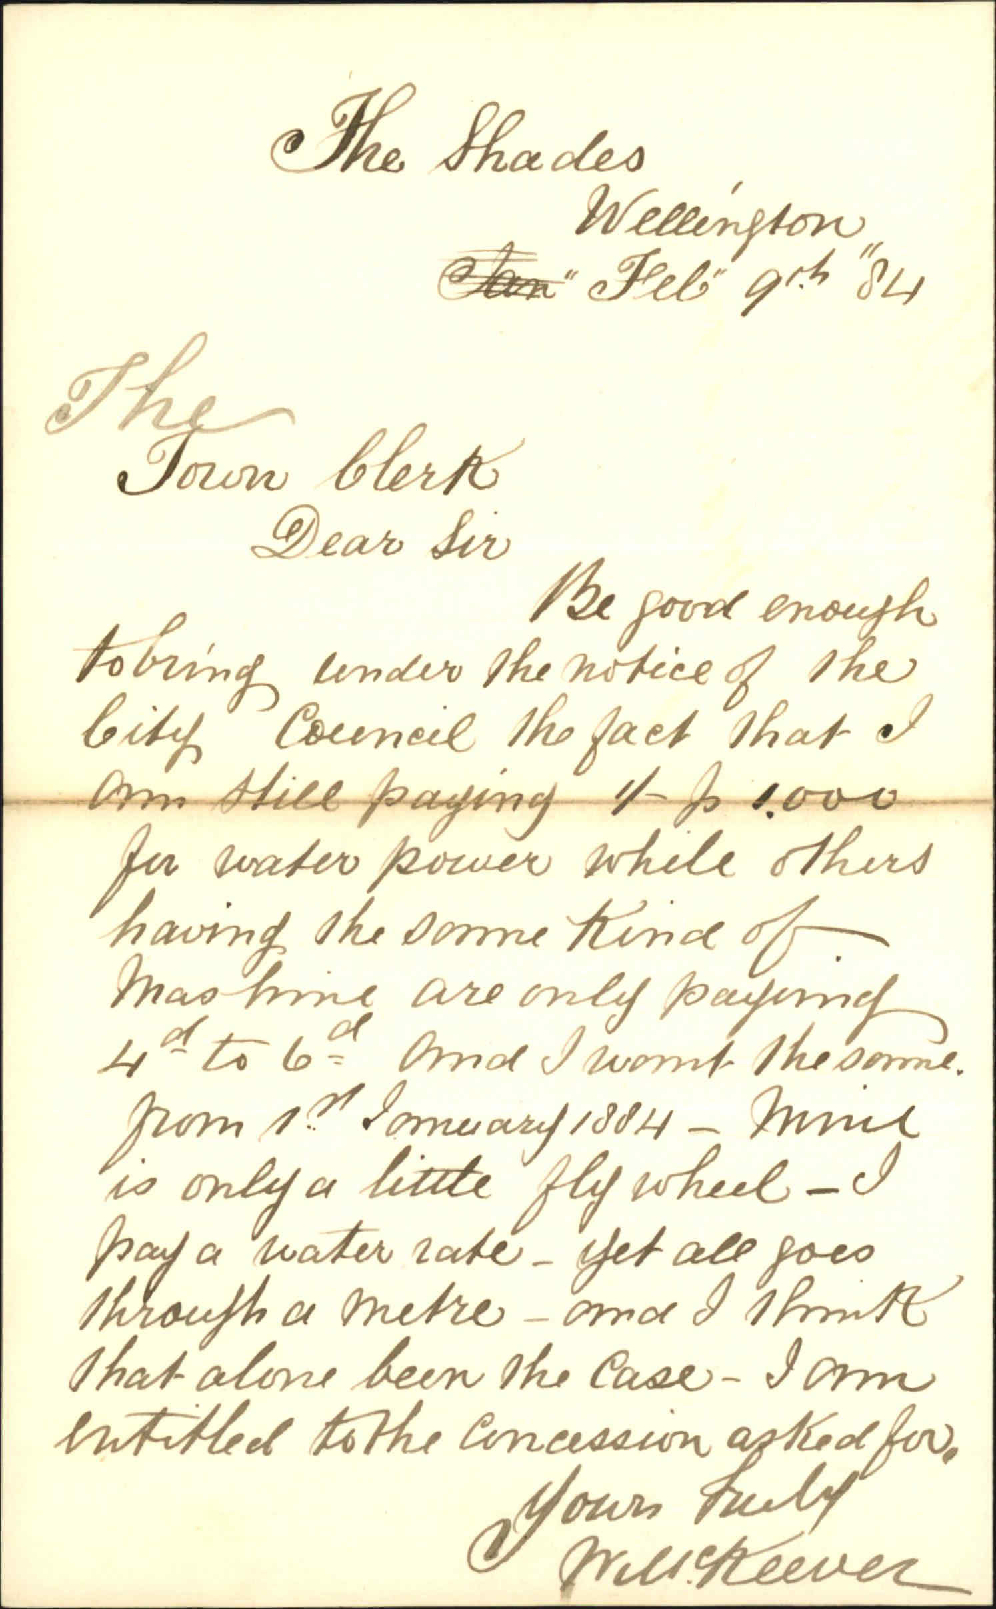 The Shades
Wellington
Jan" Feb" 9th "84
The
Town Clerk
Dear Sir
Be good enough
to bring under the notice of the
City Council the fact that I
am still paying 1/- p 1.000
for water power while others
having the same kind of
Mashine are only paying
4d to 6d and I want the same.
from 1st January 1884 - Mine
is only a little fly wheel - I
pay a water rate - yet all goes
through a metre - and I think
that alone been the case - I am
entitled to the concession asked for.
Yours truly
W. McKeever